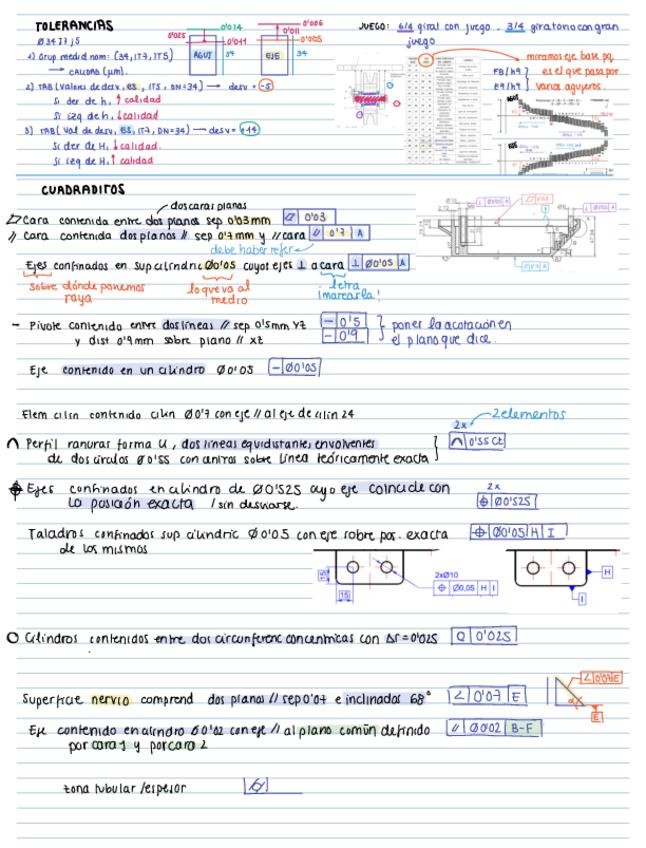 TOLERANCIAS
Ø34 J7 js
1) Grup med id nom: (34, IT7, IT5)
→ CALIDAD (µm).
2) TAB (Valores de desv, es, IT5, DN=34) → desv = -5
Si der de h, ↑ calidad
Si izq de h, ↓ calidad
3) TAB (Val de desv, ES, IT7, DN=34) → desv = +14
Si der de H, ↓ calidad.
Si izq de H, ↑ calidad
0'025
0'014
0'011
AGUJ
34
0'006
0'011
-0'005
EJE
34
JUEGO: 6/4 giral con juego . 3/4 giratorio con gran
juego
miramos eje base pq
es el que pasa por
varios agujeros.
F8/h9
E9/h9
CUADRADITOS
dos caras planas
⏥ Cara contenida entre dos planos sep 0'03 mm ⏥ 0'03
// Cara contenida dos planos // sep 0'7 mm y // cara // 0'7 A
debe haber refer
Ejes confinados en sup cilindric Ø0'05 cuyos ejes ⊥ a cara ⊥ Ø0'05 A
sobre dónde ponemos raya
lo que va al medio
letra
¡marcarla!
— Pivote contenido entre dos líneas // sep 0'5mm YZ — 0'5
y dist 0'9mm sobre plano // XZ — 0'9
poner la acotación en
el plano que dice.
Eje contenido en un cilindro Ø0'05 — Ø0'05
Elem cilin contenido cilin Ø0'7 con eje // al eje de cilin 24
2x 2 elementos
⌒ Perfil ranuras forma U, dos líneas equidistante, envolventes ⌒ 0'55 CZ
de dos círculos Ø0'55 con centros sobre línea teóricamente exacta
⌖ Ejes confinados en cilindro de Ø0'525 cuyo eje coincide con
la posición exacta / sin desviarse.
2x
⌖ Ø0'525
Taladros confinados sup cilíndric Ø0'05 con eje sobre pos. exacta ⌖ Ø0'05 H I
de los mismos
15
15
2xØ10
⌖ Ø0,05 H I
H
I
○ Cilindros contenidos entre dos circunferenc concentricas con Δr = 0'025 ○ 0'025
Superficie nervio comprend dos planos // sep 0'07 e inclinados 68° ∠ 0'07 E
∠ 0'07 E
E
Eje contenido en cilindro Ø0'02 con eje // al plano común definido // Ø0'02 B-F
por cara 1 y por cara 2
zona tubular /espesor ⌭